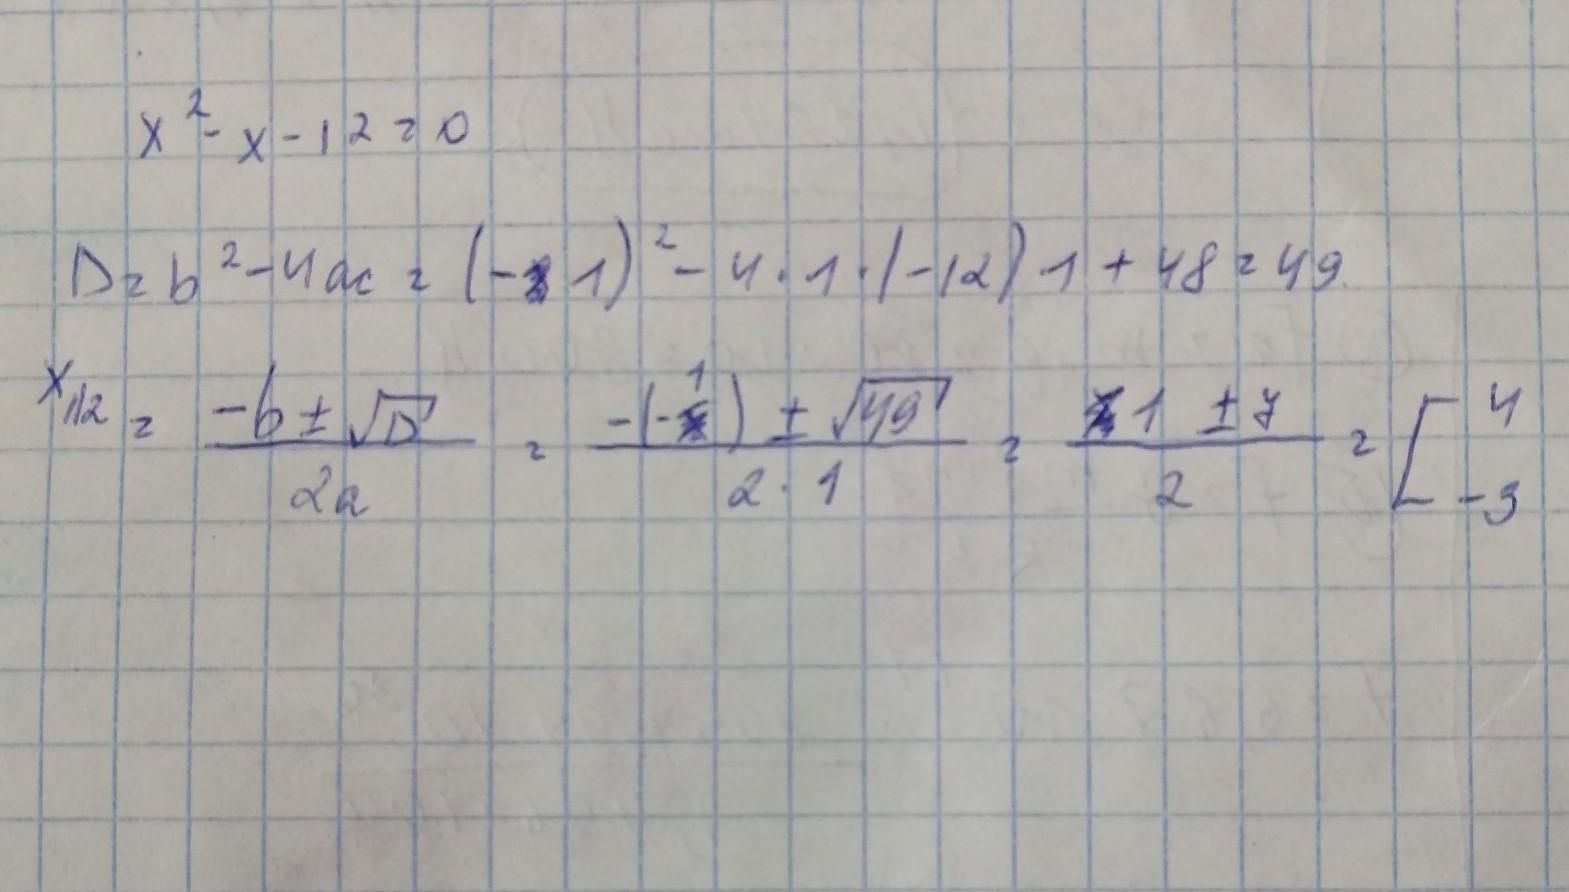 x² - x - 12 = 0
D = b² - 4ac = (-1)² - 4 · 1 · (-12) 1 + 48 = 49
x₁/₂ = (-b ± √D)/(2a) = (-(-1) ± √49)/(2 · 1) = (1 ± 7)/2 = [ 4 -3